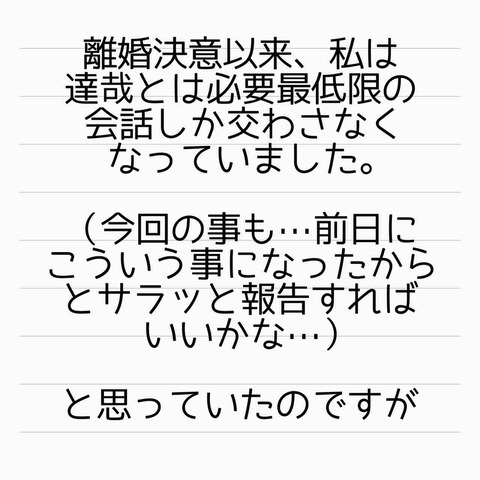 離婚決意以来、私は
達哉とは必要最低限の
会話しか交わさなく
なっていました。
（今回の事も…前日に
こういう事になったから
とサラッと報告すれば
いいかな…）
と思っていたのですが